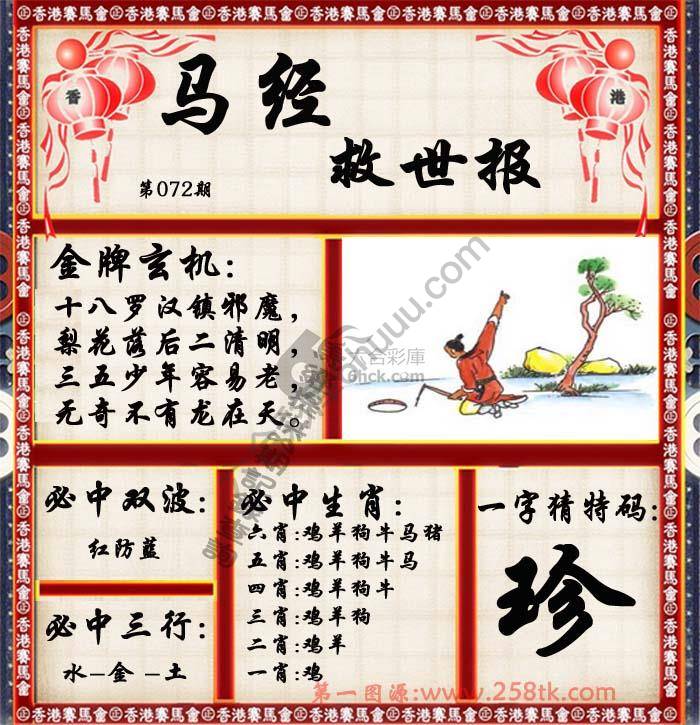 香港賽馬會
香 港
马经
救世报
第072期
金牌玄机:
十八罗汉镇邪魔,
梨花落后二清明,
三五少年容易老,
无奇不有龙在天。
六合彩庫
必中双波:
红防蓝
必中三行:
水-金-土
必中生肖:
六肖:鸡羊狗牛马猪
五肖:鸡羊狗牛马
四肖:鸡羊狗牛
三肖:鸡羊狗
二肖:鸡羊
一肖:鸡
一字猜特码:
珍
第一图源:www.258tk.com